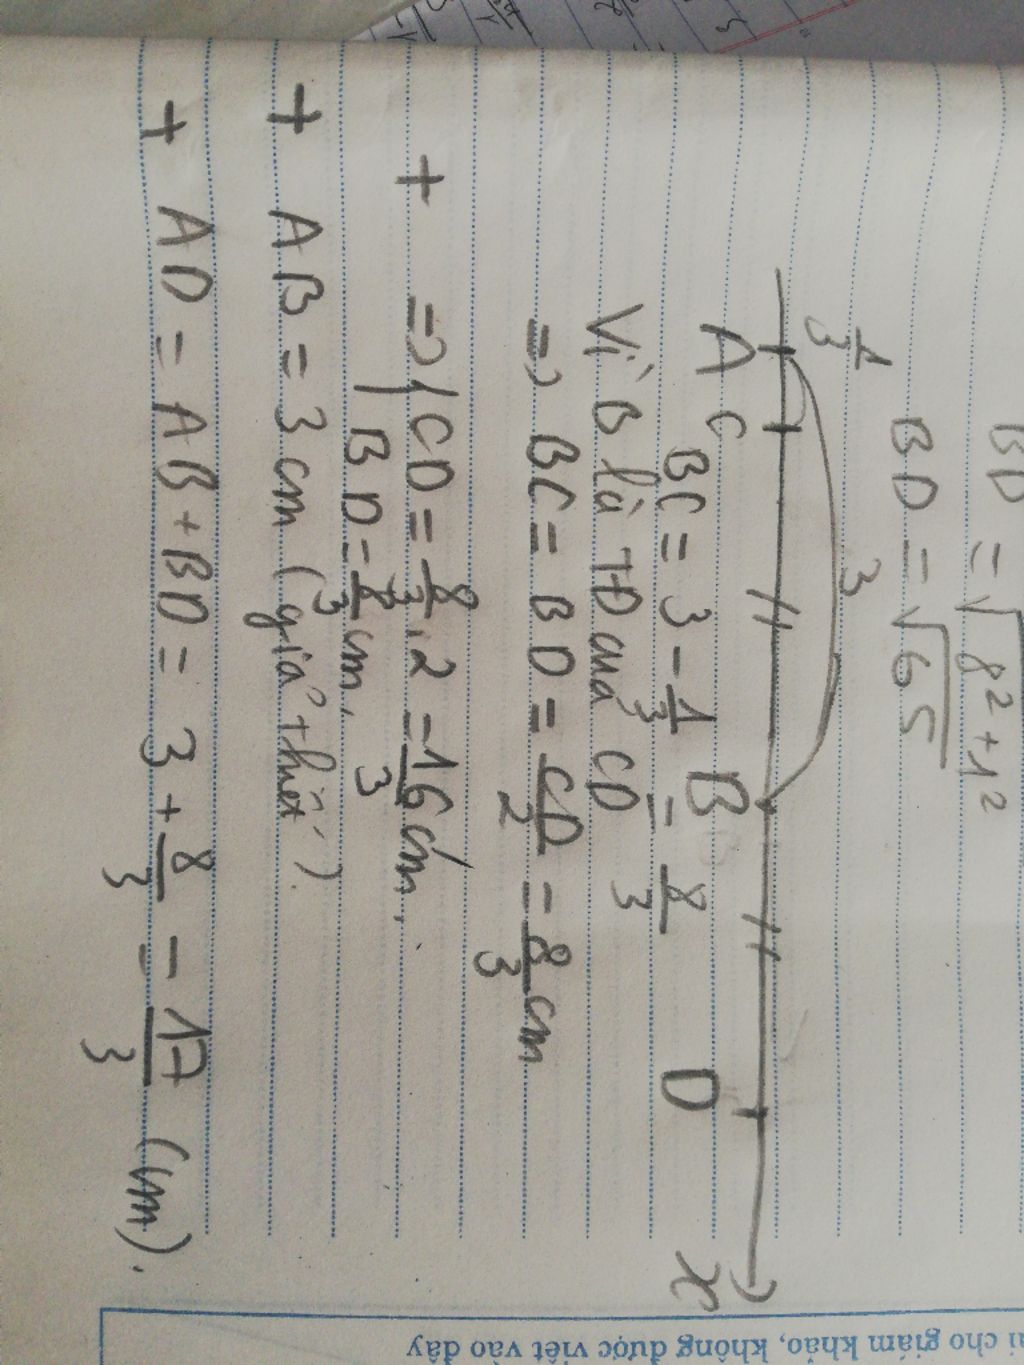 BD = √8²+1²
BD = √65
1/3
3
A C B D x
BC = 3 - 1/3 = 8/3
Vì B là TĐ của CD
=> BC = BD = CD/2 = 8/3 cm
+ => { CD = 8/3 . 2 = 16/3 cm,
BD = 8/3 cm,
+ AB = 3 cm (giả thiết).
+ AD = AB + BD = 3 + 8/3 = 17/3 (cm).
cho giám khảo, không được viết vào đây